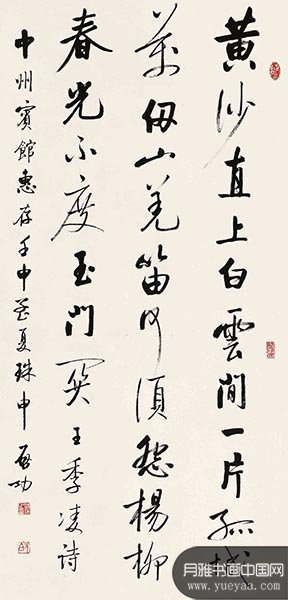 黄沙直上白雲間一片孤城
萬仞山羌笛何須怨楊柳
春光不度玉門関王季凌詩
中州賓館惠存壬申夏珠申啟功
月雅书画中国网
www.yueyaa.com